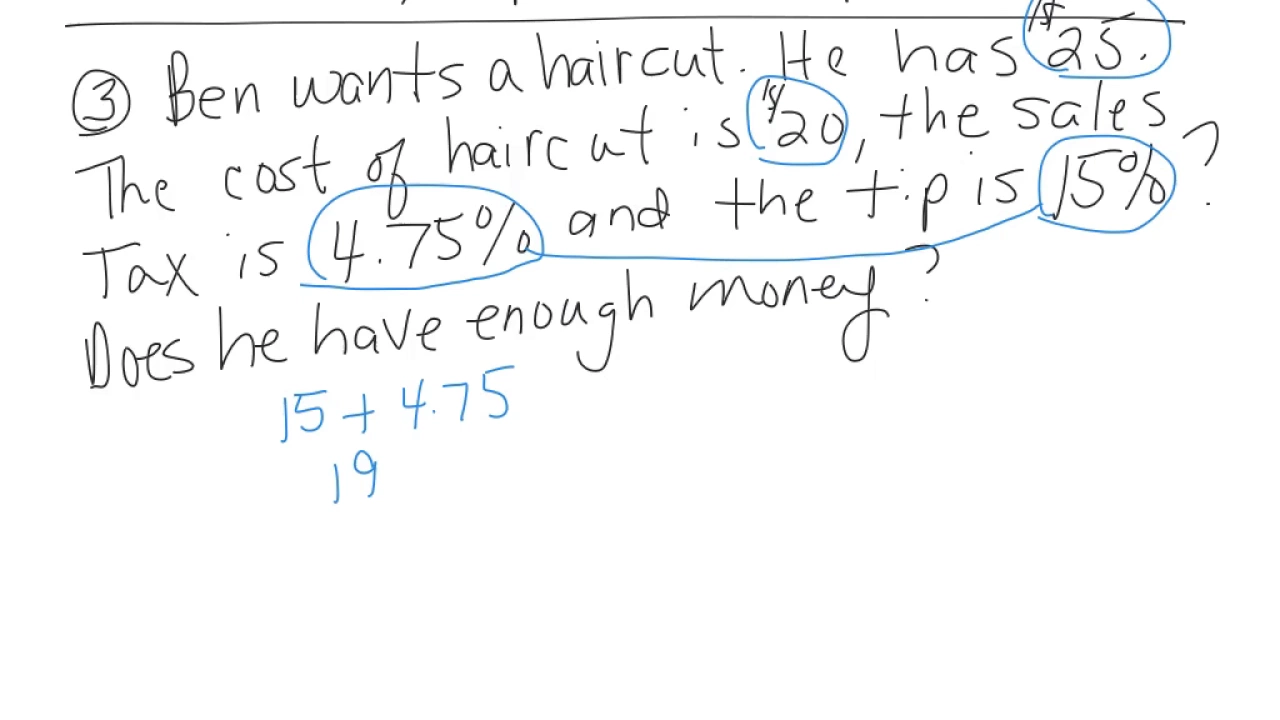 ③ Ben wants a haircut. He has $25.
The cost of haircut is $20, the sales
Tax is 4.75% and the tip is 15%?
Does he have enough money?
15 + 4.75
19